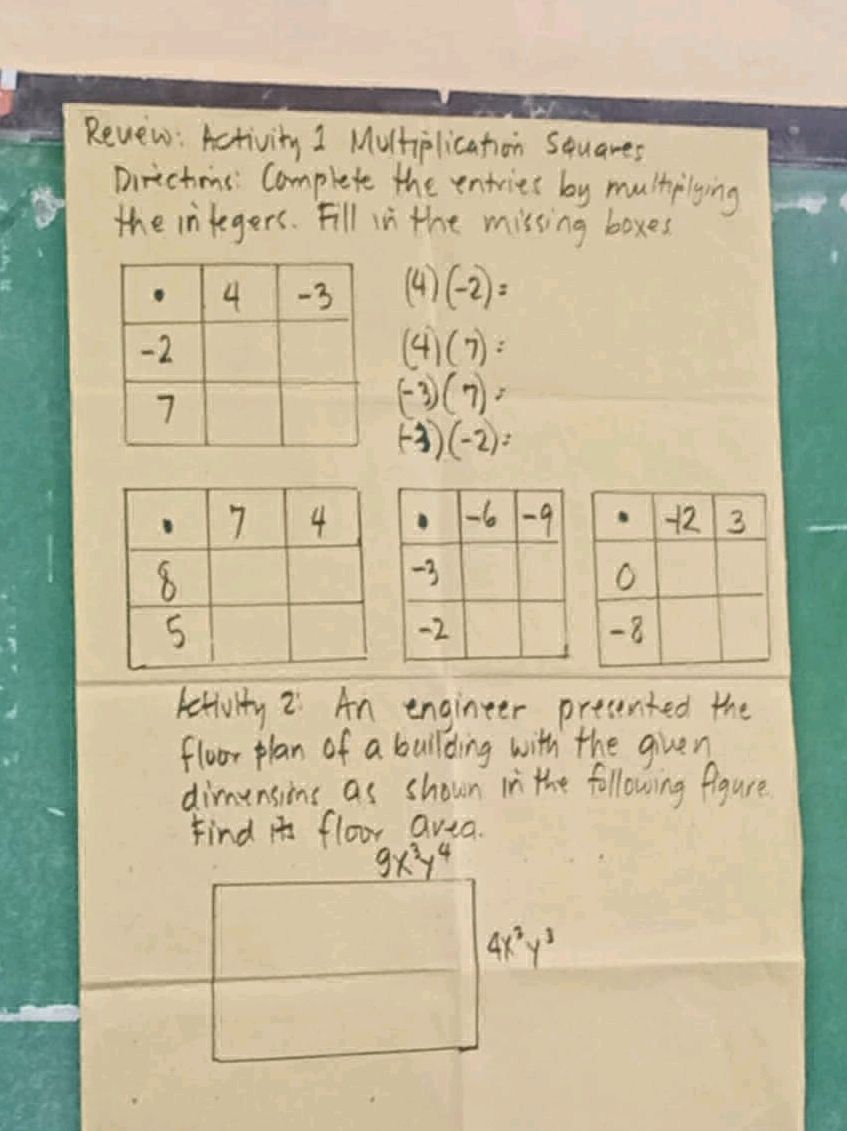 Review: Activity 1 Multiplication Squares
Directions: Complete the entries by multiplying
the integers. Fill in the missing boxes
• 4 -3
-2
7
(4)(-2)=
(4)(7)=
(-3)(7)=
(-3)(-2)=
• 7 4
8
5
• -6 -9
-3
-2
• -12 3
0
-8
Activity 2: An engineer presented the
floor plan of a building with the given
dimensions as shown in the following figure.
Find its floor area.
9x³y⁴
4x²y³